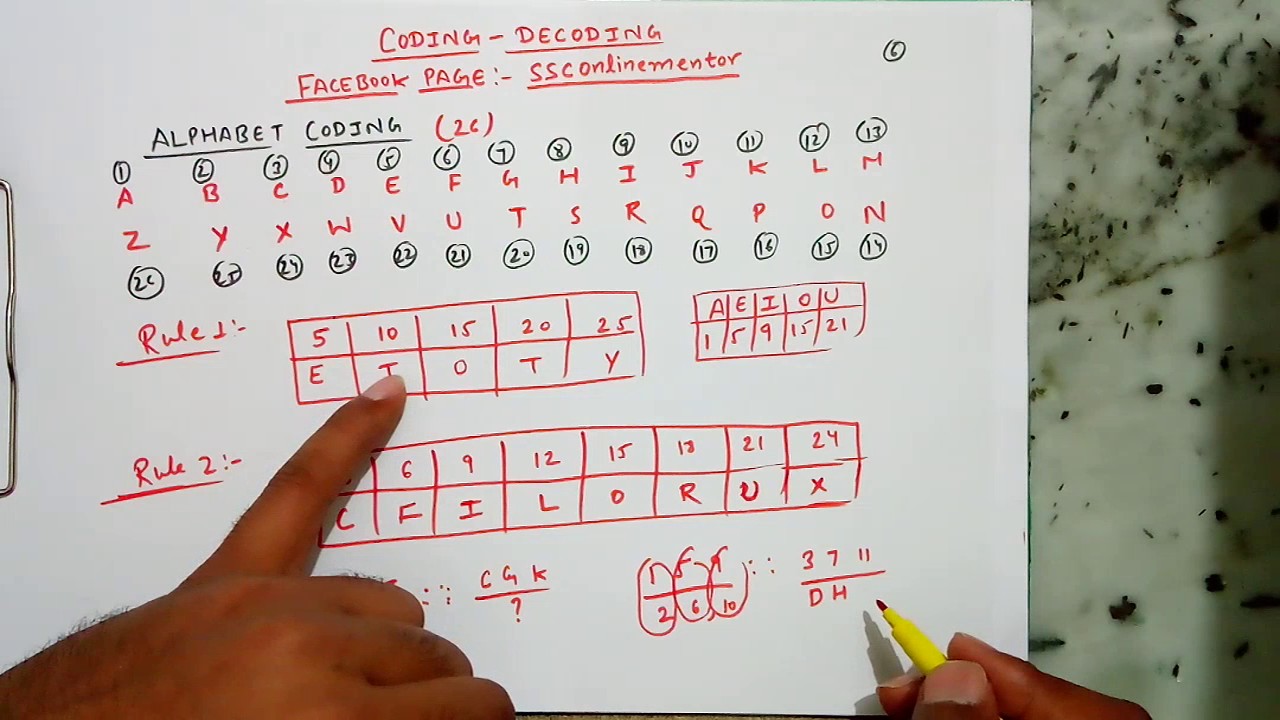 CODING - DECODING
FACEBOOK PAGE:- SSConlinementor
6
ALPHABET CODING (26)
1 2 3 4 5 6 7 8 9 10 11 12 13
A B C D E F G H I J K L M
Z Y X W V U T S R Q P O N
26 25 24 23 22 21 20 19 18 17 16 15 14
Rule 1:-
5 10 15 20 25
E T O T Y
A E I O U
1 5 9 15 21
Rule 2:-
6 9 12 15 18 21 24
C F I L O R U X
:: CGK
?
1 5 9 :: 3 7 11
2 6 10 D H